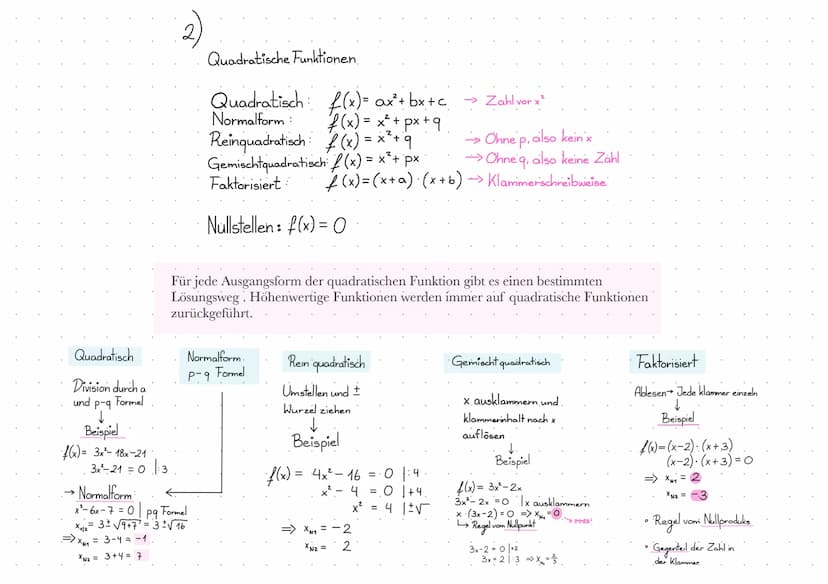 2)
Quadratische Funktionen
Quadratisch: f(x) = ax² + bx + c → Zahl vor x²
Normalform: f(x) = x² + px + q
Reinquadratisch: f(x) = x² + q → Ohne p, also kein x
Gemischtquadratisch: f(x) = x² + px → Ohne q, also keine Zahl
Faktorisiert: f(x) = (x+a) · (x+b) → Klammerschreibweise
Nullstellen: f(x) = 0
Für jede Ausgangsform der quadratischen Funktion gibt es einen bestimmten
Lösungsweg . Höhenwertige Funktionen werden immer auf quadratische Funktionen
zurückgeführt.
Quadratisch
Division durch a
und p-q Formel
↓
Beispiel
f(x) = 3x² - 18x - 21
3x² - 21 = 0 | :3
→ Normalform
x² - 6x - 7 = 0 | pq Formel
x₁/₂ = 3 ± √9+7 = 3 ± √16
⇒ x_N1 = 3 - 4 = -1
x_N2 = 3 + 4 = 7
Normalform
p-q Formel
Rein quadratisch
Umstellen und ±
Wurzel ziehen
↓
Beispiel
f(x) = 4x² - 16 = 0 | :4
x² - 4 = 0 | +4
x² = 4 | ±√
⇒ x_N1 = -2
x_N2 = 2
Gemischt quadratisch
x ausklammern und
klammerinhalt nach x
auflösen
↓
Beispiel
f(x) = 3x² - 2x
3x² - 2x = 0 | x ausklammern
x · (3x - 2) = 0 ⇒ x_N1 = 0
↳ Regel vom Nullpunkt → immer!
3x - 2 = 0 | +2
3x = 2 | :3 ⇒ x_N2 = 2/3
Faktorisiert
Ablesen → Jede klammer einzeln
↓
Beispiel
f(x) = (x-2) · (x+3)
(x-2) · (x+3) = 0
⇒ x_N1 = 2
x_N2 = -3
• Regel vom Nullproduks
• Gegenteil der Zahl in
der Klammer